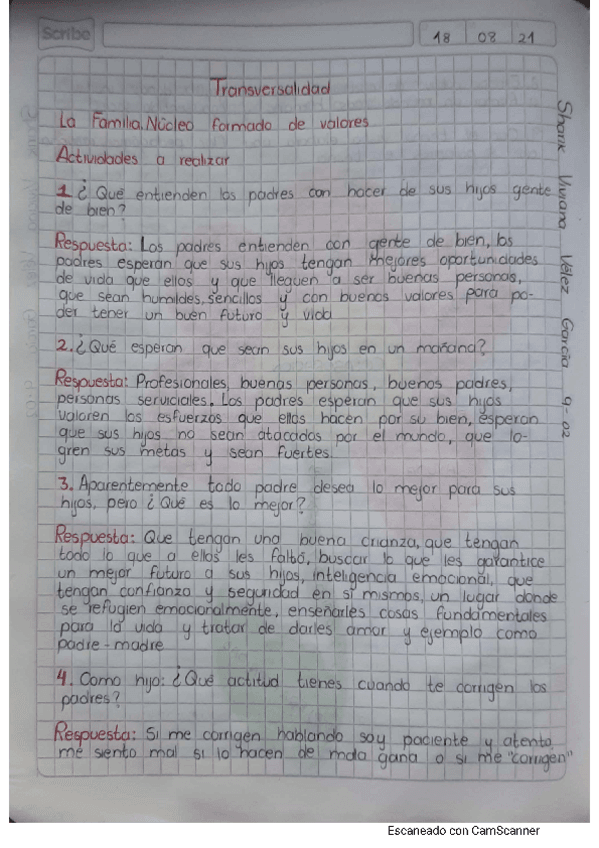 Scribe
18 08 21
Transversalidad
La Familia, Núcleo formado de valores
Actividades a realizar
1. ¿Qué entienden los padres con hacer de sus hijos gente
de bien?
Respuesta: Los padres entienden con gente de bien, los
padres esperan que sus hijos tengan mejores oportunidades
de vida que ellos y que lleguen a ser buenas personas,
que sean humildes, sencillos y con buenos valores para po-
der tener un buen futuro y vida
2. ¿Qué esperan que sean sus hijos en un mañana?
Respuesta: Profesionales, buenas personas, buenos padres,
personas serviciales. Los padres esperan que sus hijos
valoren los esfuerzos que ellos hacen por su bien, esperan
que sus hijos no sean atacados por el mundo, que lo-
gren sus metas y sean fuertes.
3. Aparentemente todo padre desea lo mejor para sus
hijos, pero ¿Qué es lo mejor?
Respuesta: Que tengan una buena crianza, que tengan
todo lo que a ellos les faltó, buscar lo que les garantice
un mejor futuro a sus hijos, inteligencia emocional, que
tengan confianza y seguridad en si mismos, un lugar donde
se refugien emocionalmente, enseñarles cosas fundamentales
para la vida y tratar de darles amor y ejemplo como
padre-madre
4. Como hijo: ¿Qué actitud tienes cuando te corrigen los
padres?
Respuesta: Si me corrigen hablando soy paciente y atento,
me siento mal si lo hacen de mala gana o si me "corrigen"
Sharik Viviana Vélez García 9-02
Escaneado con CamScanner